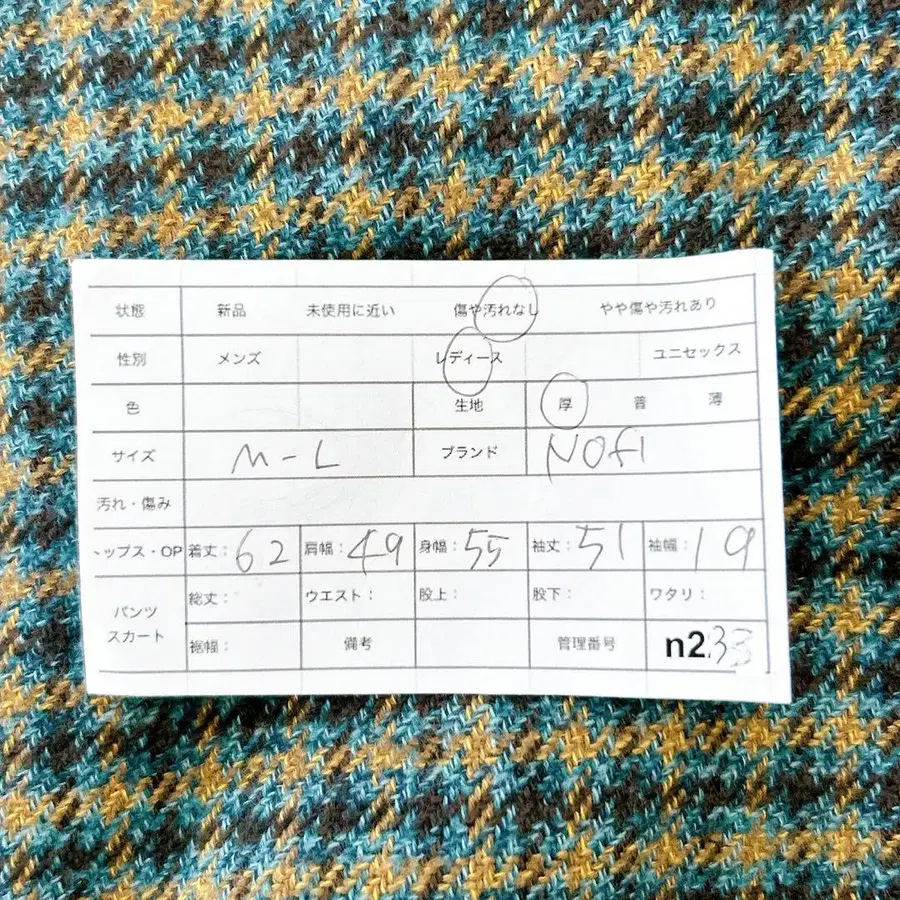 状態 新品 未使用に近い 傷や汚れなし やや傷や汚れあり
性別 メンズ レディース ユニセックス
色 生地 厚 普 薄
サイズ M-L ブランド NOfi
汚れ・傷み
トップス・OP 着丈:62 肩幅:49 身幅:55 袖丈:51 袖幅:19
パンツ 総丈: ウエスト: 股上: 股下: ワタリ:
スカート 裾幅: 備考 管理番号 n233